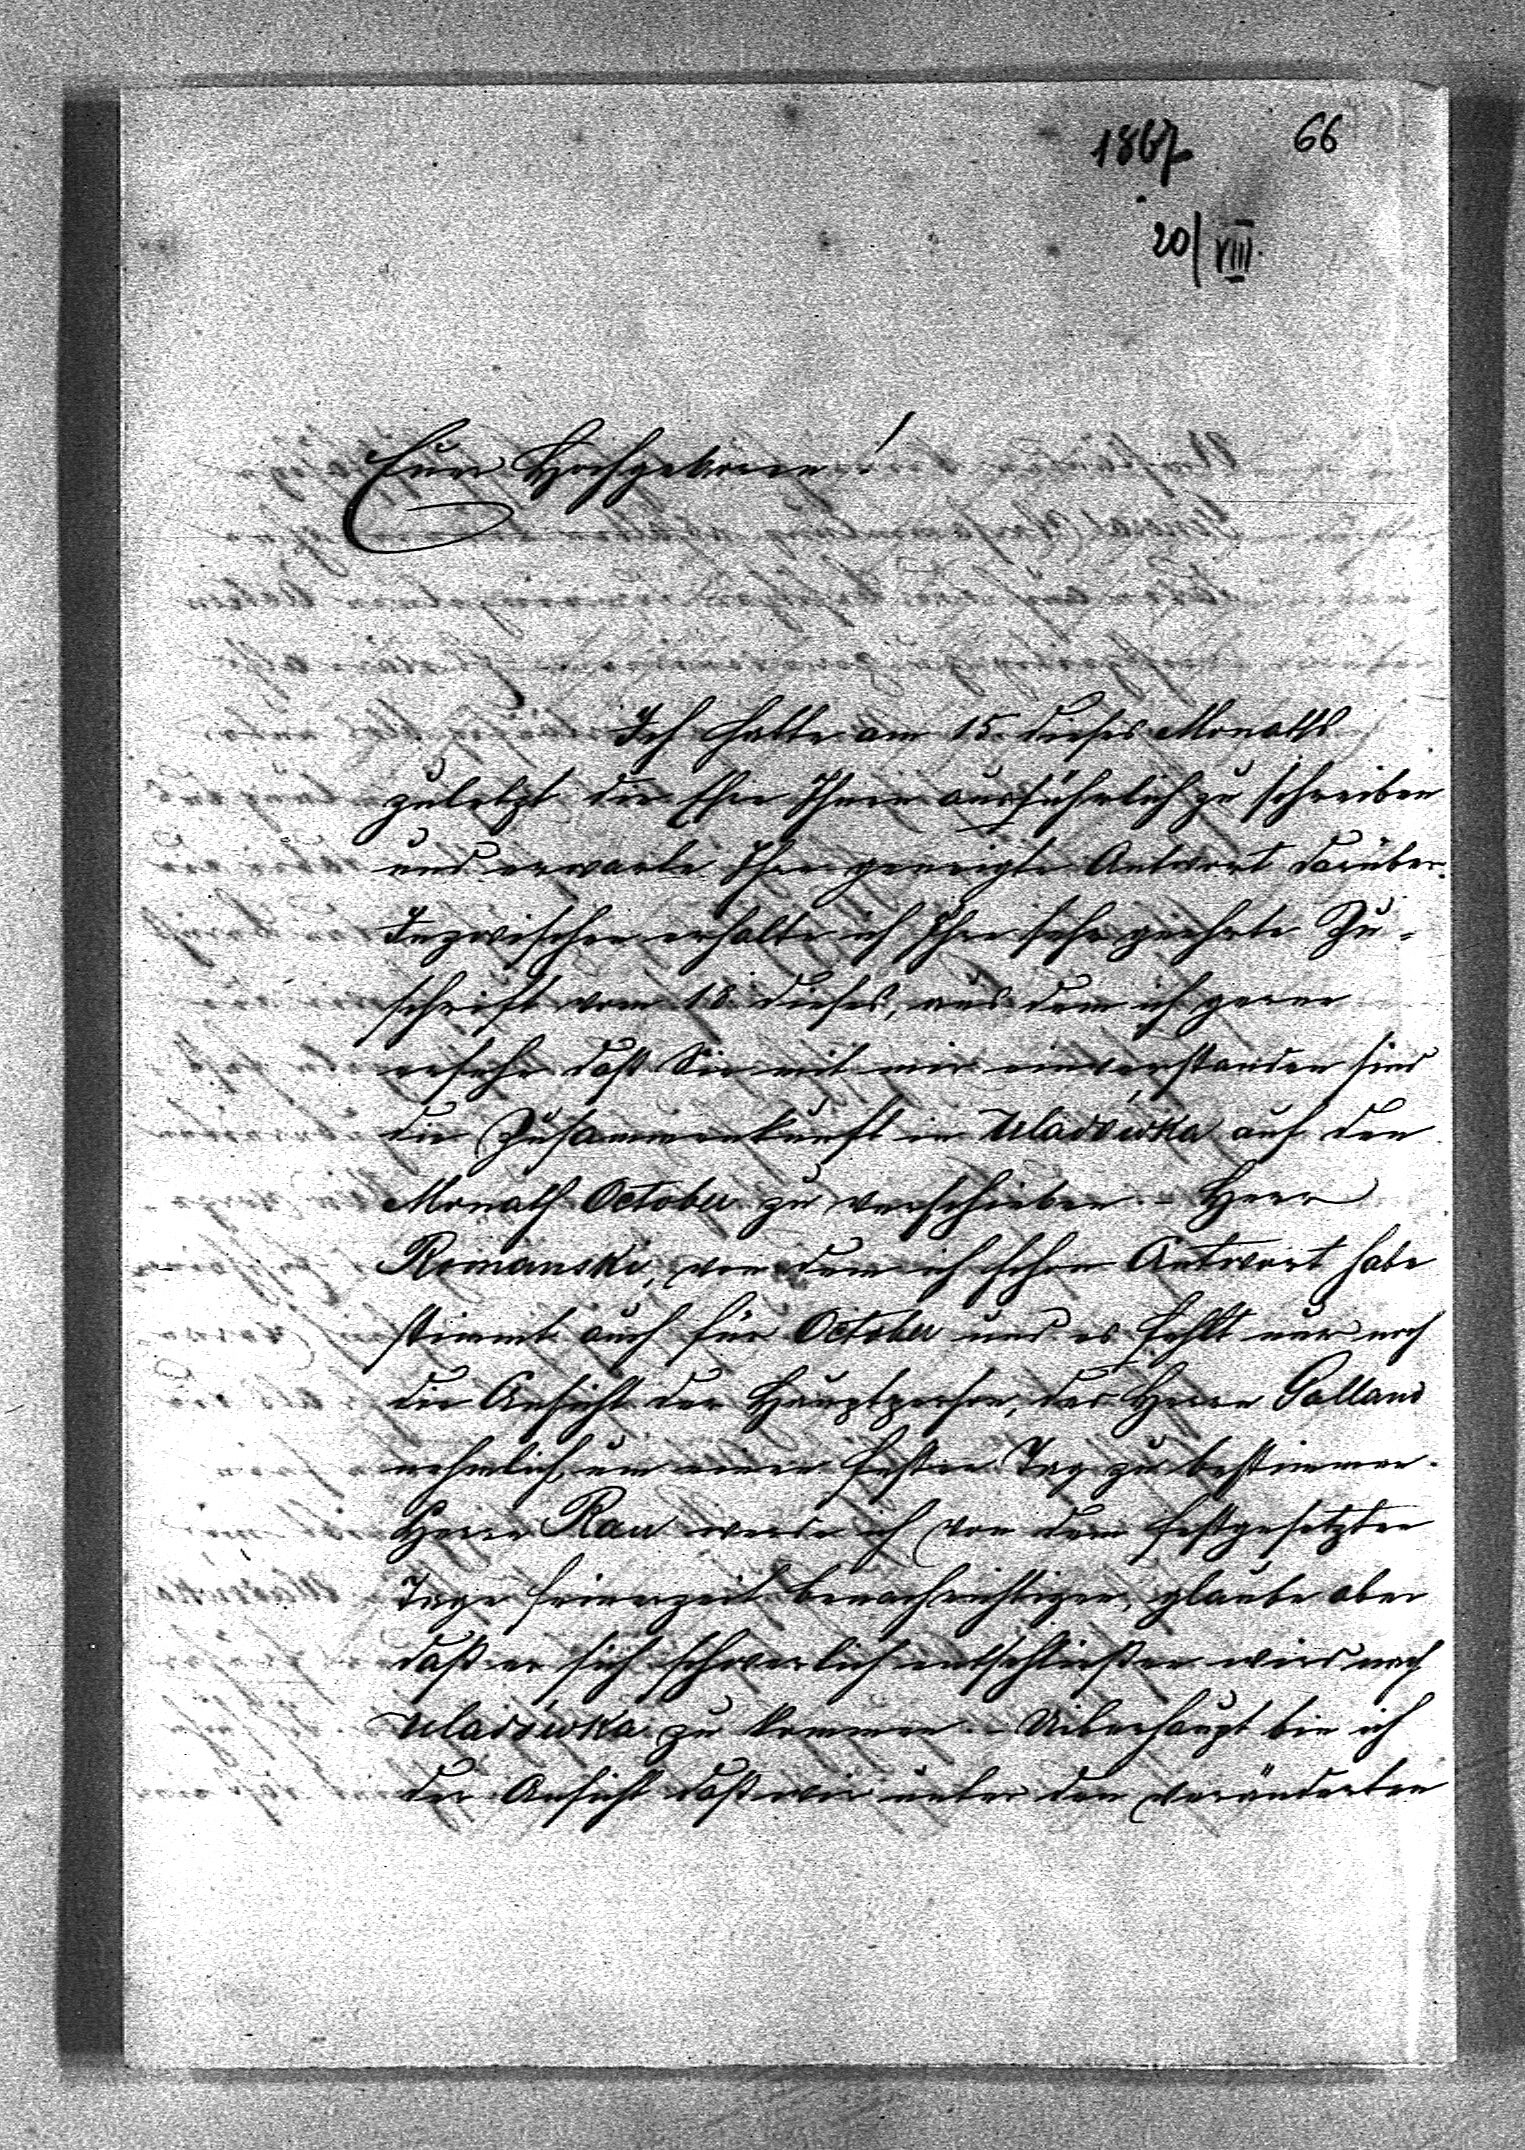 1867 66
20/VIII.
Euer Hochgeboren!
Ich hatte am 15. dieses Monaths
zuletzt die Ehre Ihnen ausführlich zu schreiben
und erwarte Ihre geneigte Antwort darüber.
Inzwischen erhalte ich Ihre sehr geehrte Zu-
schrift vom 18. dieses, aus dem ich gerne
ersehe daß Sie mit mir einverstanden sind
die Zusammenkunft in Uladówka auf den
Monath October zu verschieben. – Herr
Romanski, von dem ich schon Antwort habe
stimmt auch für October und es fehlt nur noch
die Ansicht der Hauptperson, des Herrn Galland
nehmlich, um einen festen Tag zu bestimmen.
Herrn Rau werde ich von dem festgesetzten
Tage seinerzeit benachrichtigen, glaube aber
daß er sich schwerlich entschließen wird nach
Uladówka zu kommen. – Uiberhaupt bin ich
der Ansicht daß wir unter den veränderten